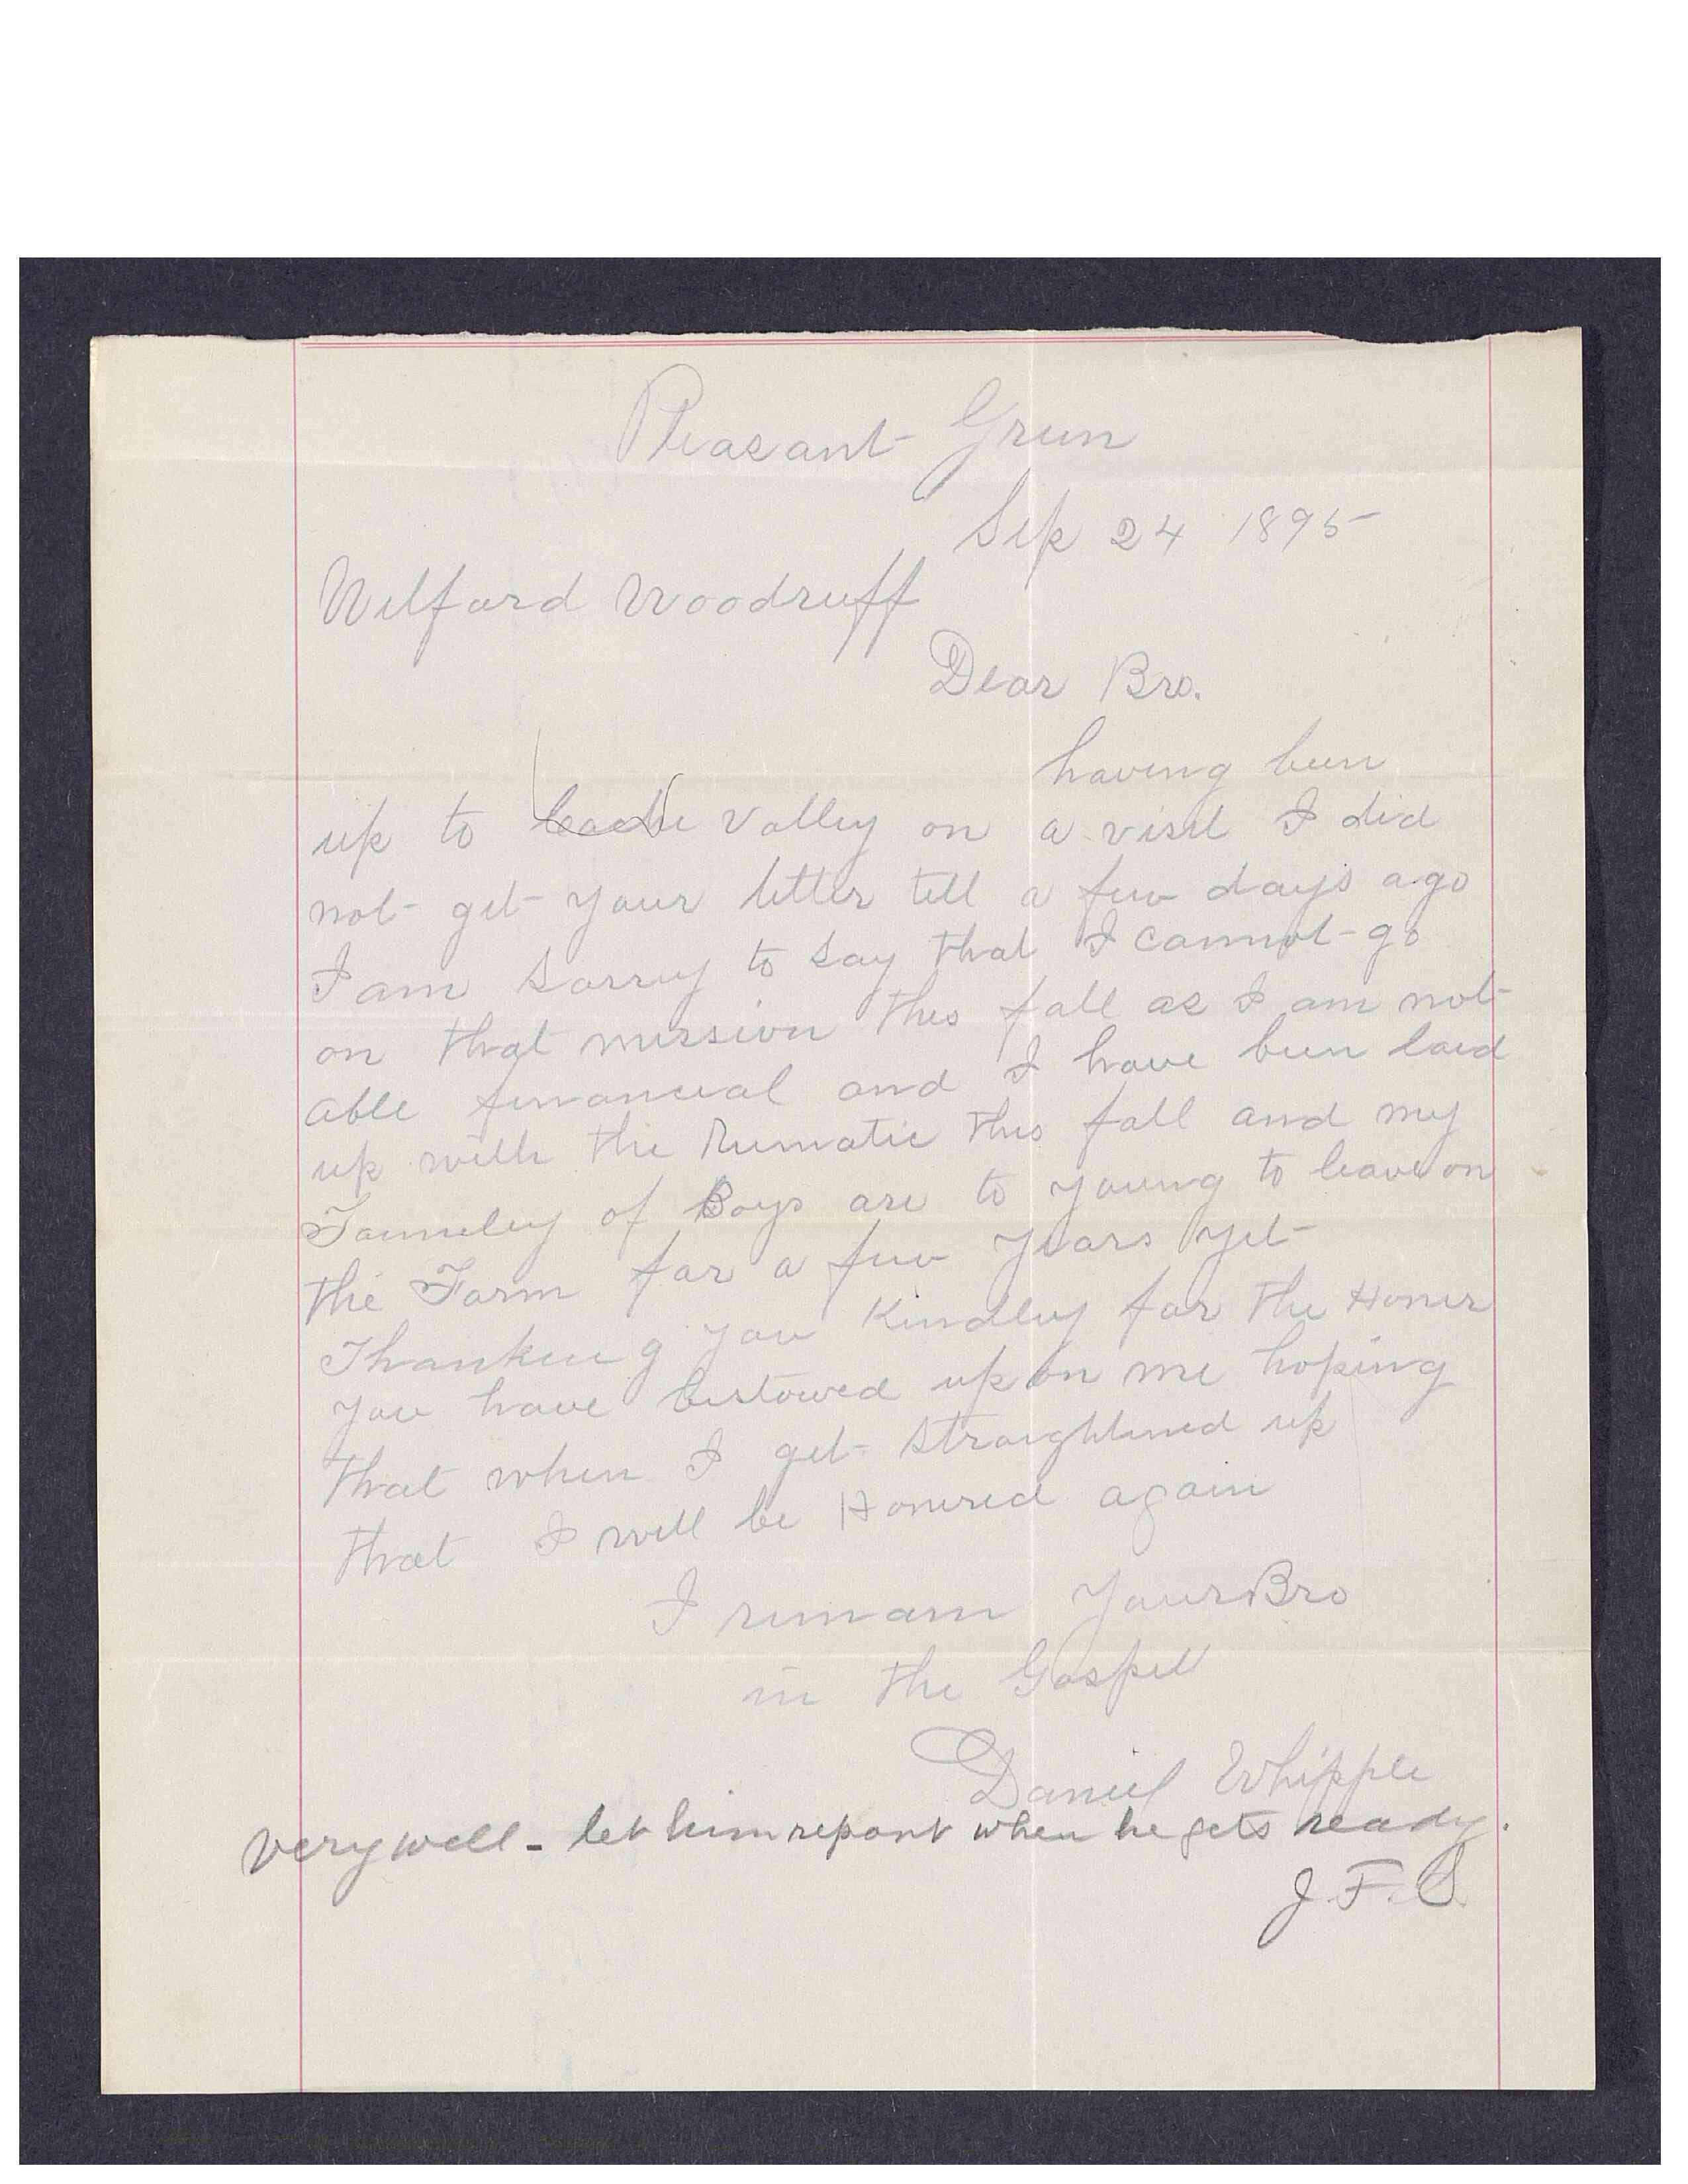 Pleasant Green
Sep 24 1895
Wilford Woodruff
Dear Bro.
having been
up to Cache valley on a visit I did
not get your letter tell a few days ago
I am sorry to say that I cannot go
on that mission this fall as I am not
able financial and I have been laid
up with the Rumatic this fall and my
Familey of Boys are to young to leave on
the Farm for a few years yet
Thanking you Kindley for the Honer
you have bestowed upon me hoping
that when I get straightened up
that I will be Honered again
I remain Your Bro
in the Gospel
Daniel Whipple
very well - let him report when he gets ready.
J. F. S.